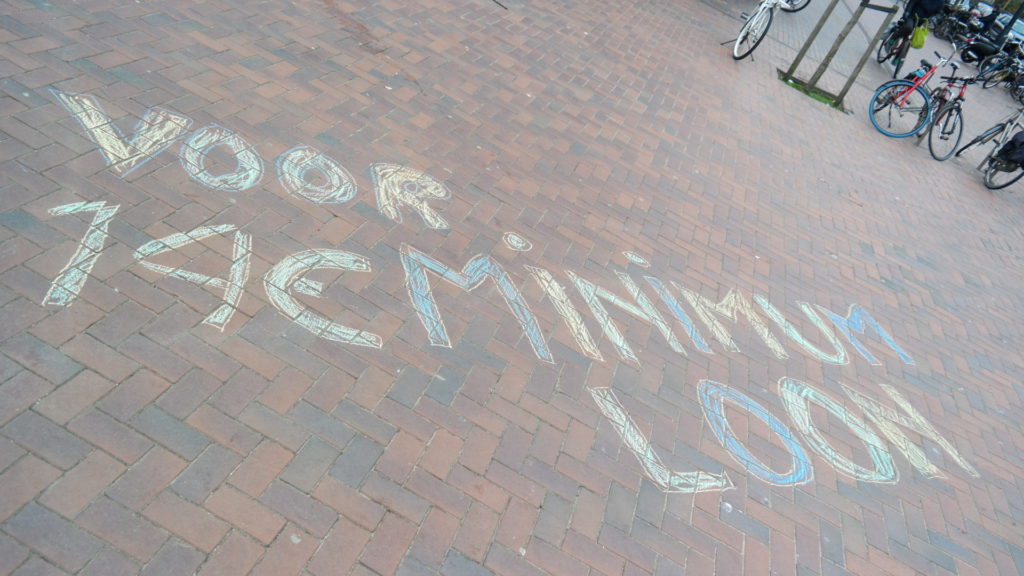 VOOR
14€ MiNiMUM
LOON